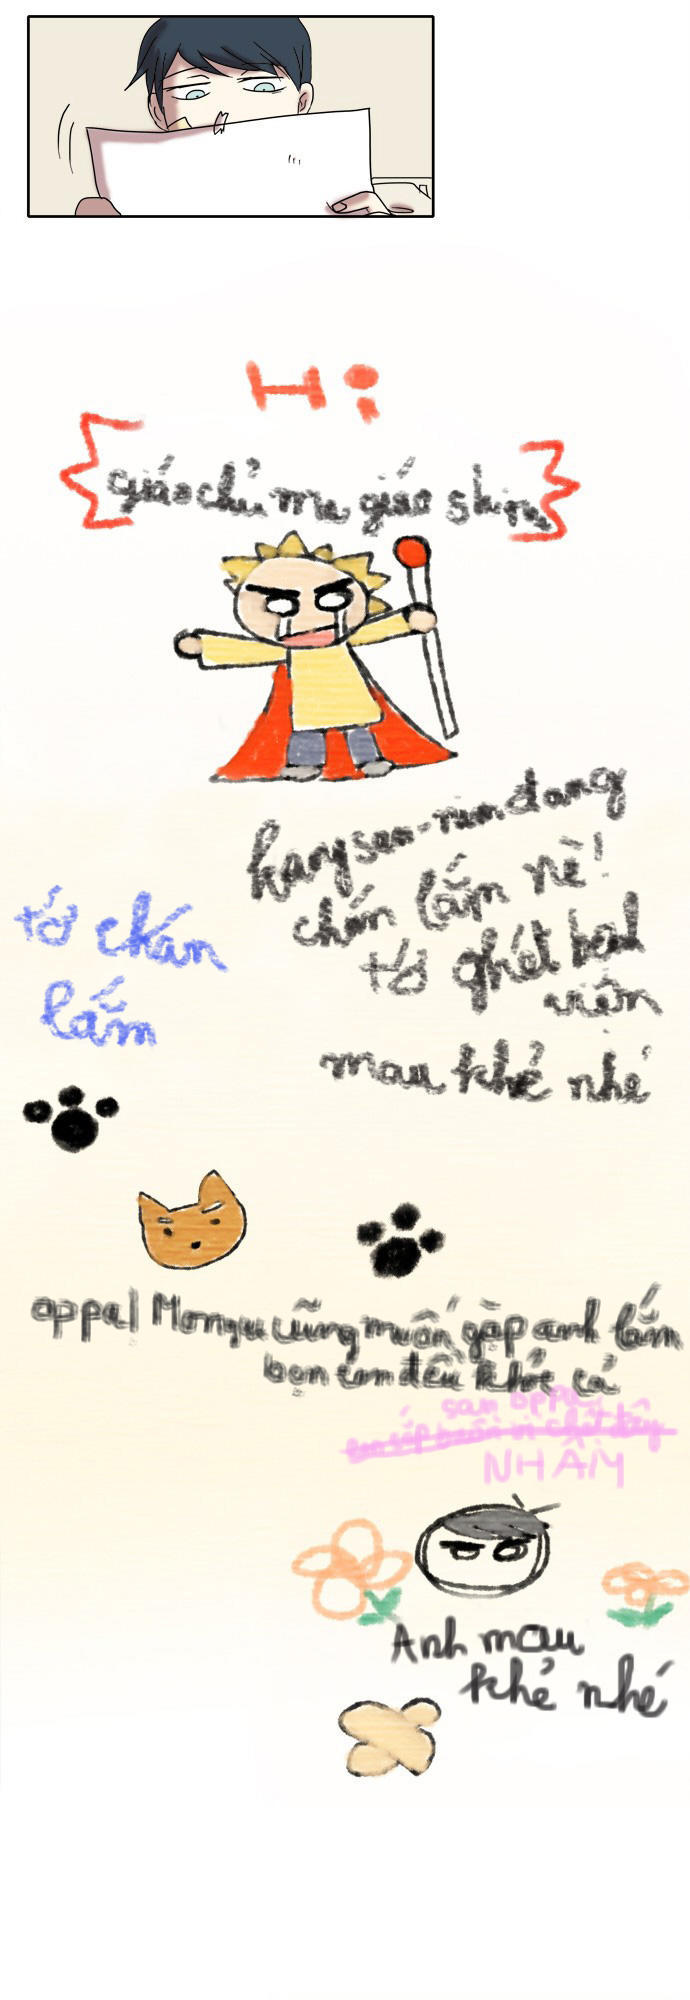 Hi
giáo chủ ma giáo shinu
kangsan-nim đang
chán lắm nè!
tớ ghét bệnh
viện
tớ chán
lắm
mau khỏe nhé
oppa! Mongu cũng muốn gặp anh lắm
bọn em đều khỏe cả
san oppa
NHẦM
Anh mau
khỏe nhé